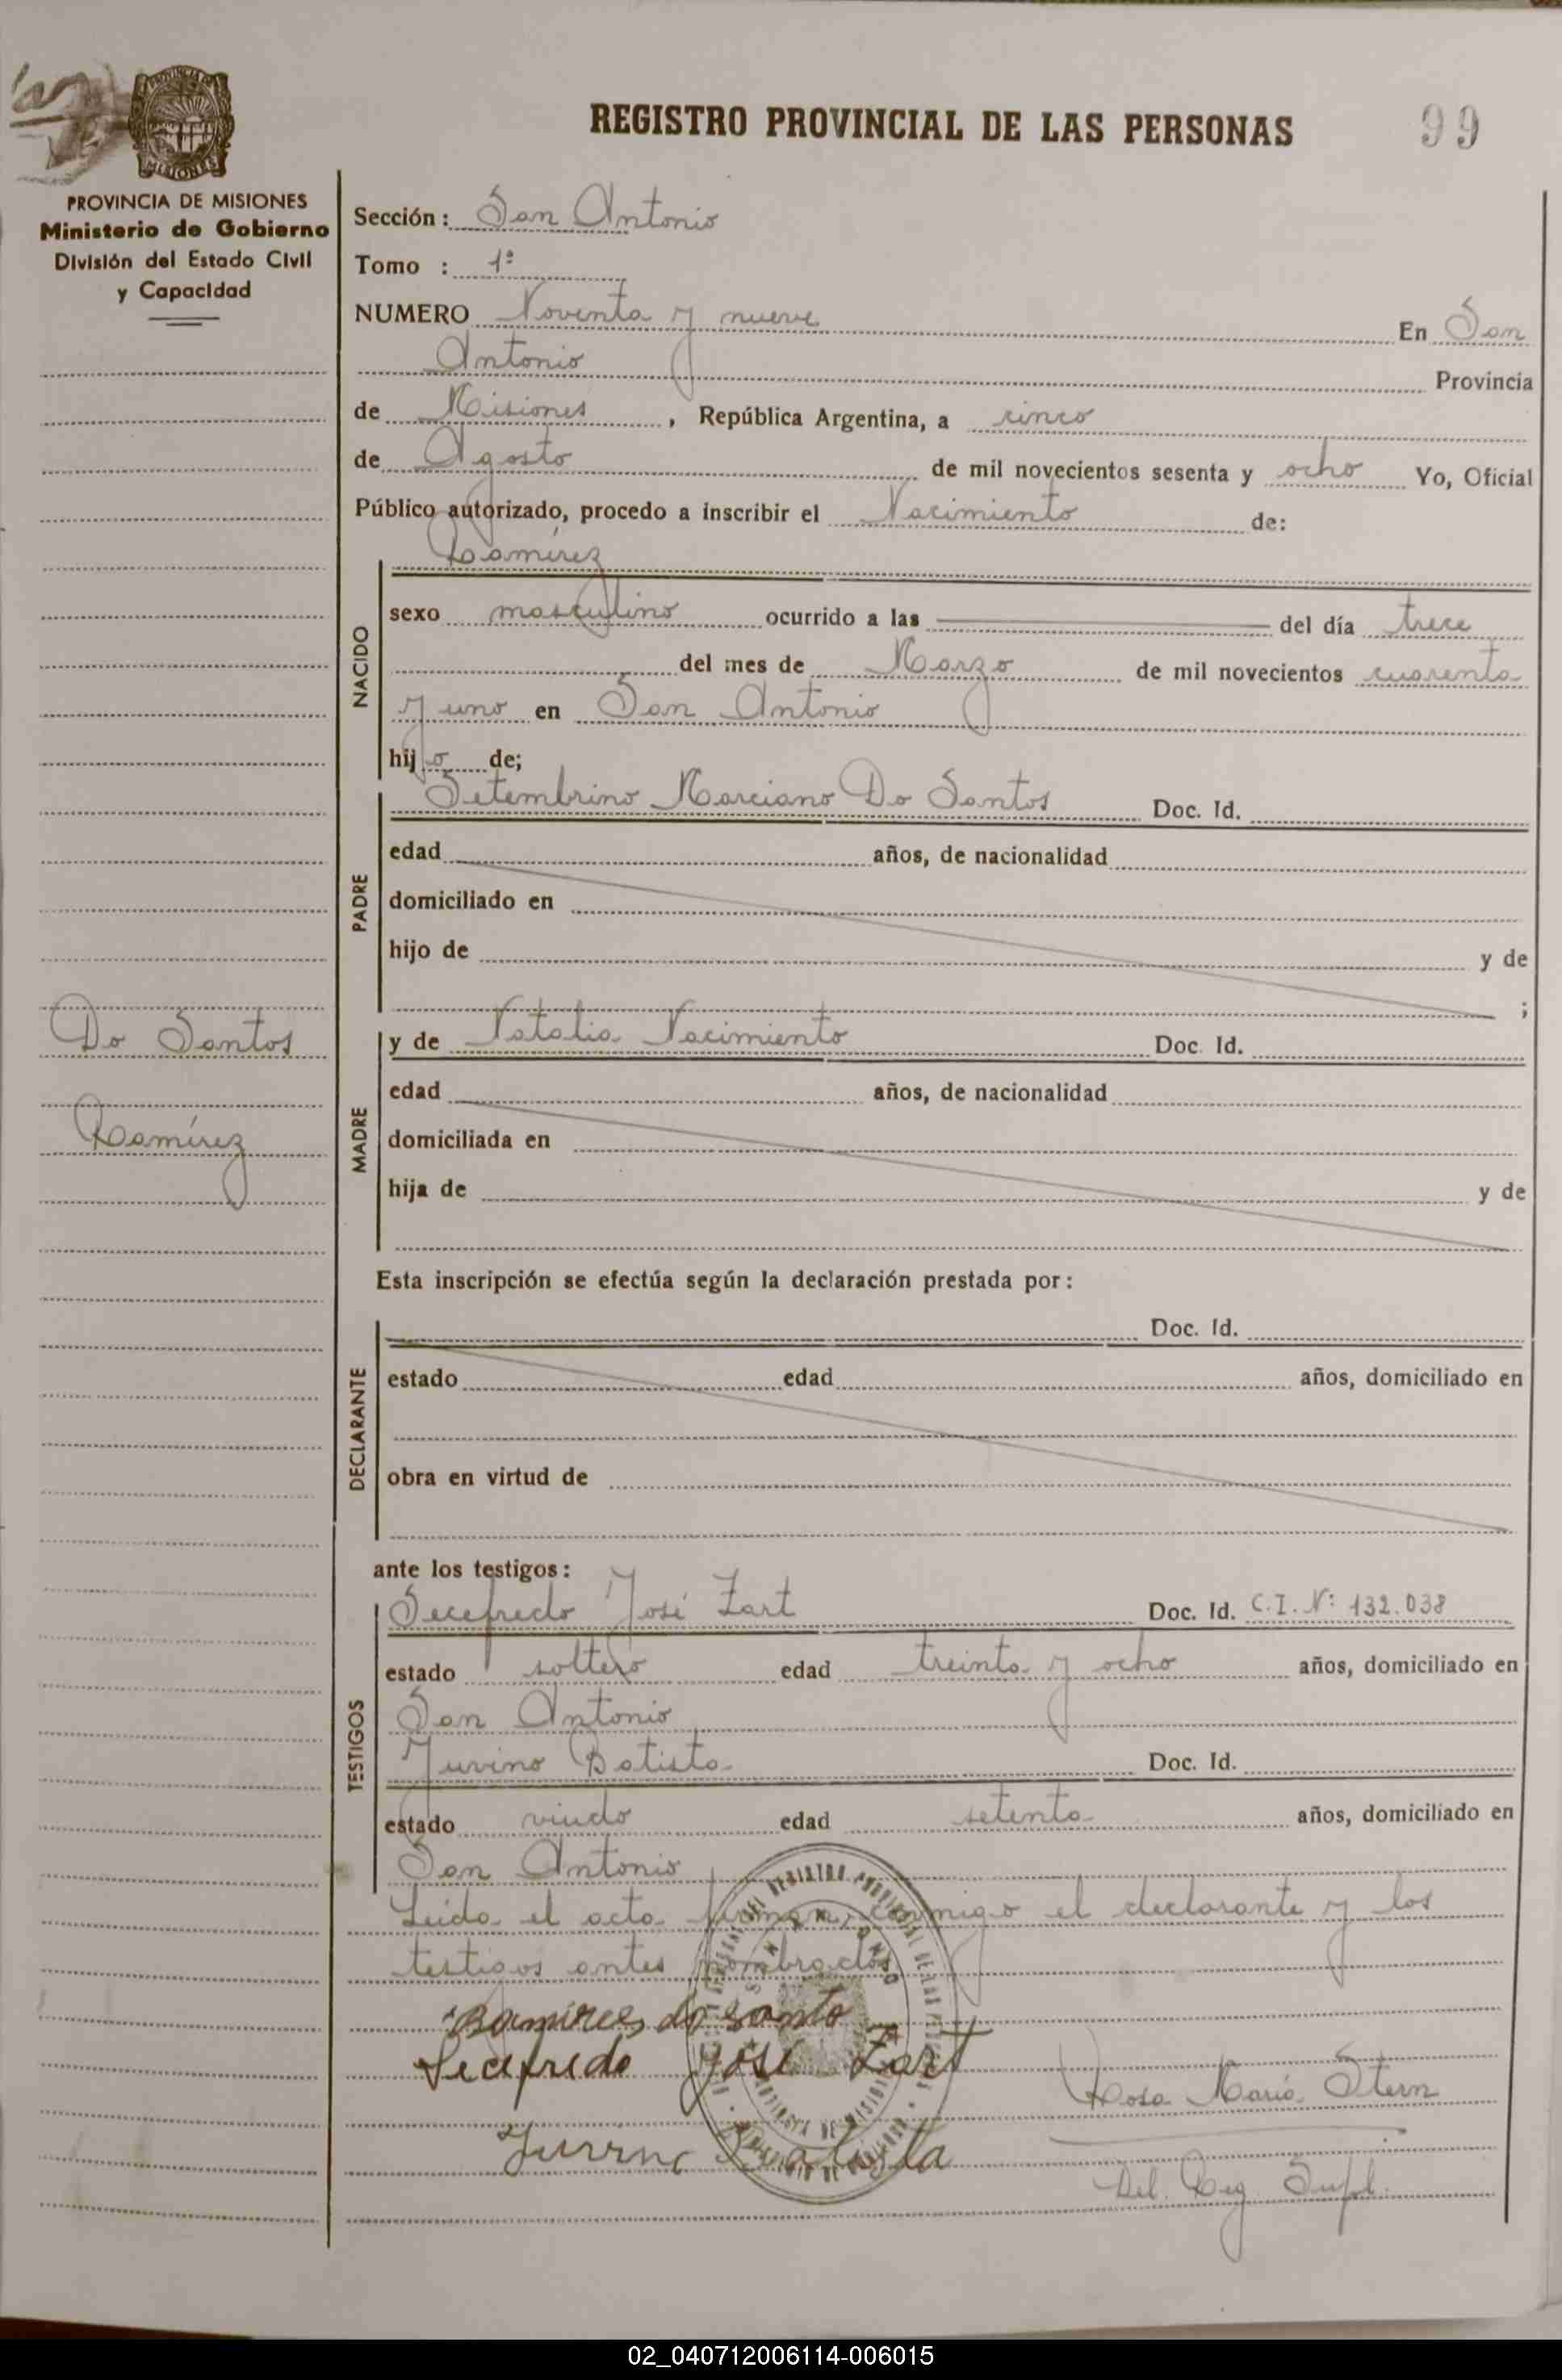 REGISTRO PROVINCIAL DE LAS PERSONAS
99
PROVINCIA DE MISIONES
Ministerio de Gobierno
División del Estado Civil
y Capacidad
Sección: San Antonio
Tomo : 1º
NUMERO Noventa y nueve En San
Antonio Provincia
de Misiones, República Argentina, a cinco
de Agosto de mil novecientos sesenta y ocho Yo, Oficial
Público autorizado, procedo a inscribir el Nacimiento de:
NACIDO
Ramírez
sexo masculino ocurrido a las del día trece
del mes de Marzo de mil novecientos cuarenta
y uno en San Antonio
hijo de;
PADRE
Setembrino Marciano Do Santos Doc. Id.
edad años, de nacionalidad
domiciliado en
hijo de y de
;
Do Santos
Ramírez
MADRE
y de Natalia Nacimiento Doc. Id.
edad años, de nacionalidad
domiciliada en
hija de y de
Esta inscripción se efectúa según la declaración prestada por:
DECLARANTE
Doc. Id.
estado edad años, domiciliado en
obra en virtud de
ante los testigos:
TESTIGOS
Secefredo José Zart Doc. Id. C.I. Nº 132.038
estado soltero edad treinta y ocho años, domiciliado en
San Antonio
Juvino Batista Doc. Id.
estado viudo edad setenta años, domiciliado en
San Antonio
Leida el acta firman, conmigo el declarante y los
testigos antes nombrados
Ramires do santo
Secefredo José Zart
Rosa María Stern
Batista
Del. Reg. Supl.
02_040712006114-006015